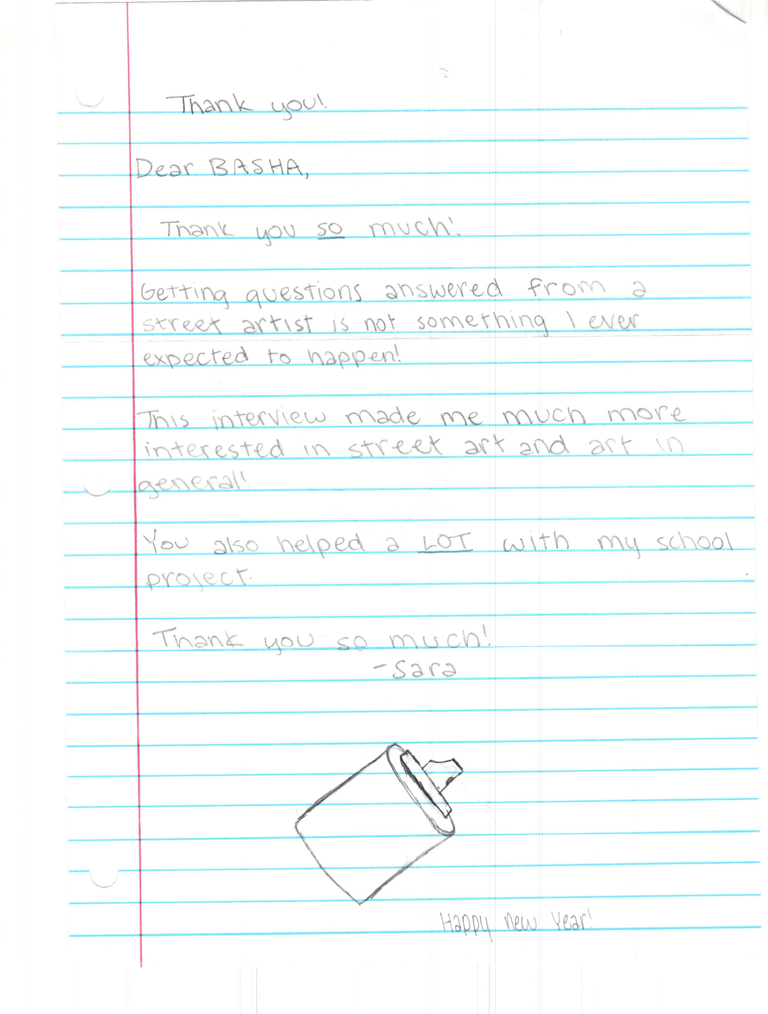 Thank you!
Dear BASHA,
Thank you so much!
Getting questions answered from a
street artist is not something I ever
expected to happen!
This interview made me much more
interested in street art and art in
general!
You also helped a LOT with my school
project.
Thank you so much!
-Sara
Happy new Year!